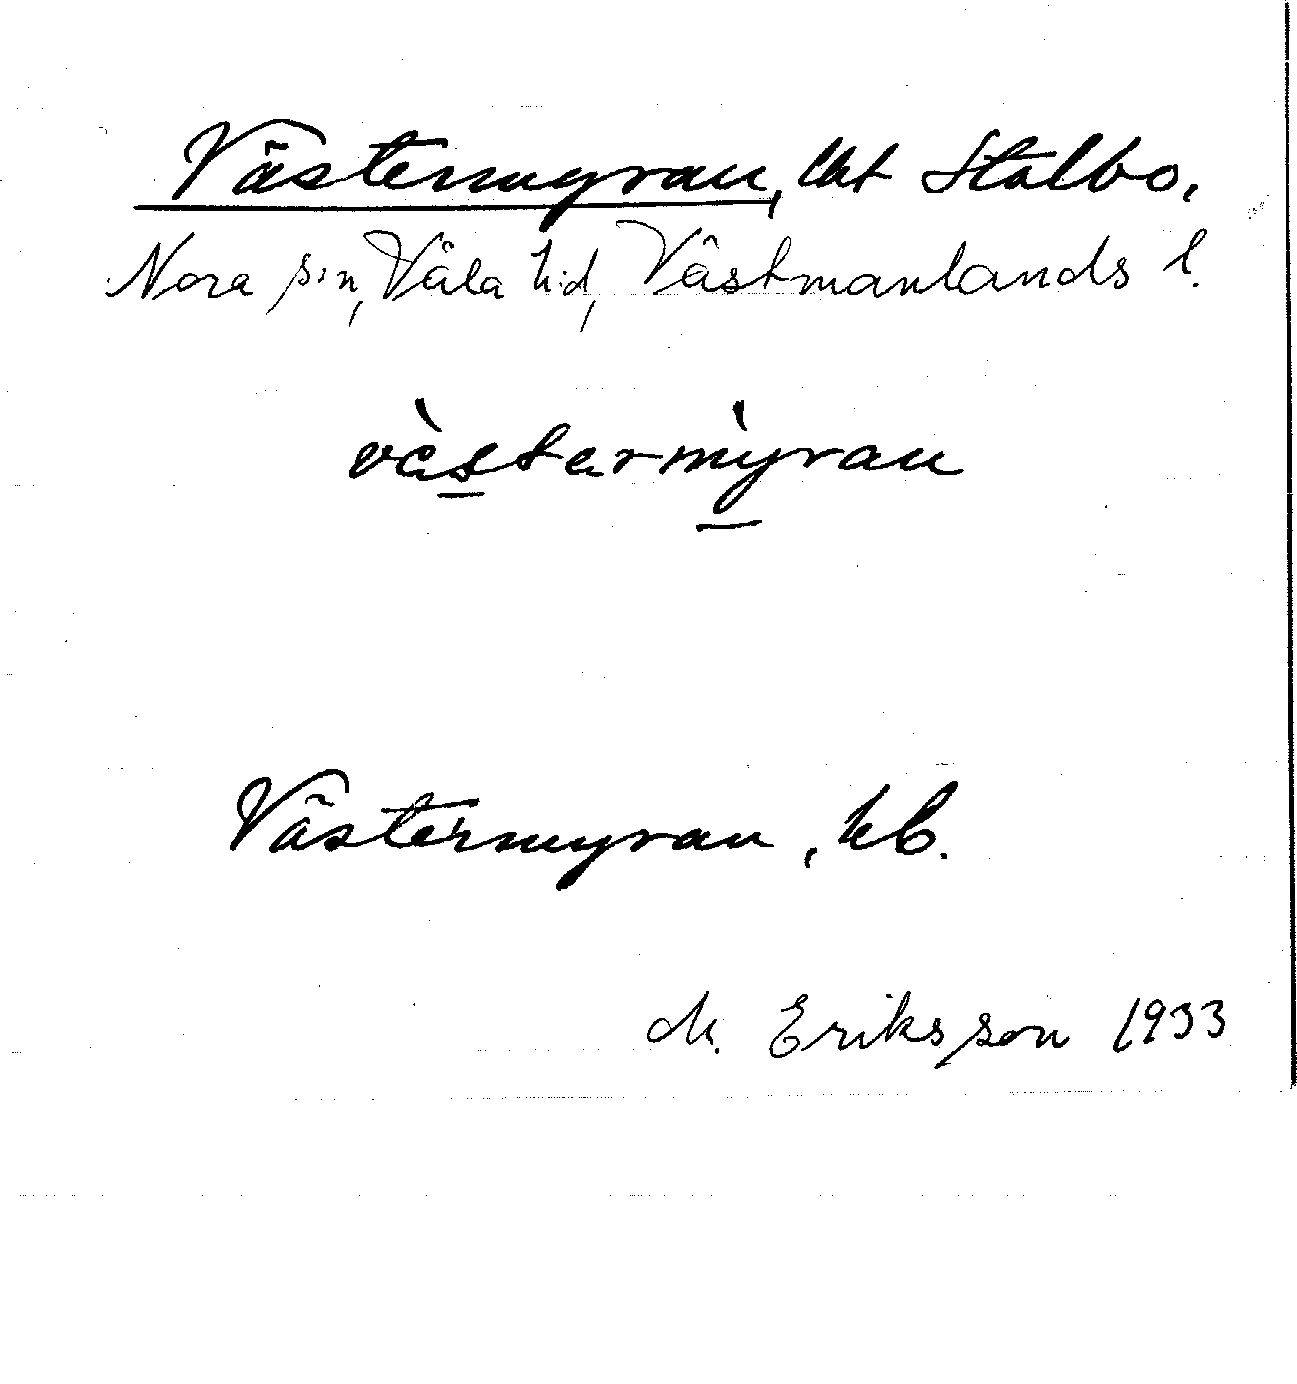 Västermyran, lht Stalbo,
Nora s:n, Våla h:d, Västmanlands l.
vàstarmỳran
Västermyran, hb.
M. Eriksson 1933